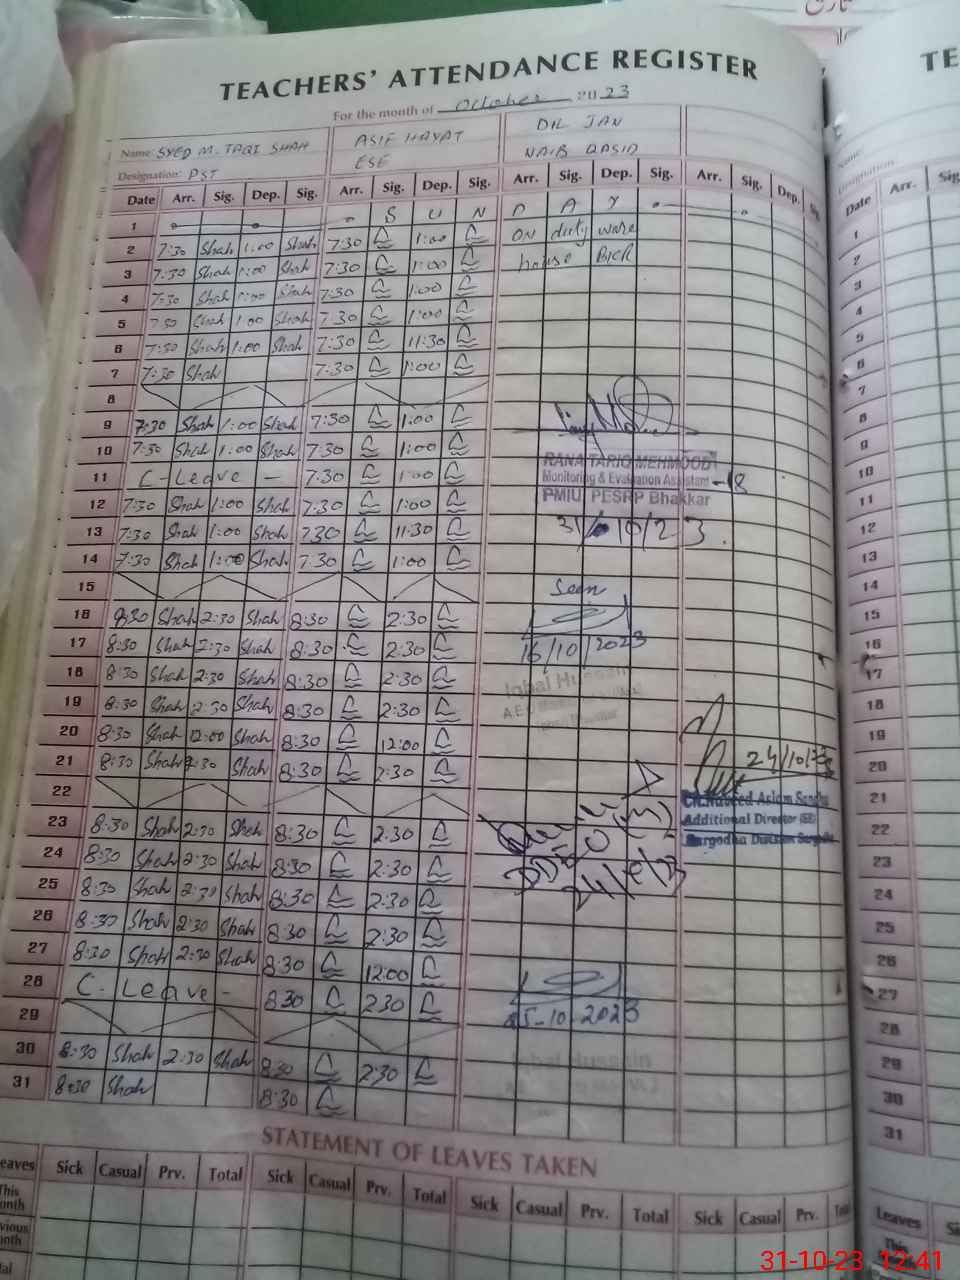 TEACHERS' ATTENDANCE REGISTER
For the month of October 2023
Name: SYED M. TAQI SHAH ASIF HAYAT DIL JAN
Designation: PST ESE NAIB QASID
Date Arr. Sig. Dep. Sig. Arr. Sig. Dep. Sig. Arr. Sig. Dep. Sig. Arr. Sig. Dep.
1 S U N D A Y
2 7:30 Shah 1:00 Shah 7:30 1:00 ON duty ware
3 7:30 Shah 1:00 Shah 7:30 1:00 house BKR
4 7:30 Shah 1:00 Shah 7:30 1:00
5 7:30 Shah 1:00 Shah 7:30 1:00
6 7:30 Shah 1:00 Shah 7:30 11:30
7 7:30 Shah 7:30 1:00
8
9 7:30 Shah 1:00 Shah 7:30 1:00
10 7:30 Shah 1:00 Shah 7:30 1:00
11 C - Leave - 7:30 1:00
12 7:30 Shah 1:00 Shah 7:30 1:00
13 7:30 Shah 1:00 Shah 7:30 11:30
14 7:30 Shah 1:00 Shah 7:30 1:00
15
16 8:30 Shah 2:30 Shah 8:30 2:30
17 8:30 Shah 2:30 Shah 8:30 2:30
18 8:30 Shah 2:30 Shah 8:30 2:30
19 8:30 Shah 2:30 Shah 8:30 2:30
20 8:30 Shah 12:00 Shah 8:30 12:00
21 8:30 Shah 2:30 Shah 8:30 2:30
22
23 8:30 Shah 2:30 Shah 8:30 2:30
24 8:30 Shah 2:30 Shah 8:30 2:30
25 8:30 Shah 2:30 Shah 8:30 2:30
26 8:30 Shah 2:30 Shah 8:30 2:30
27 8:30 Shah 2:30 Shah 8:30 12:00
28 C - Leave - 8:30 2:30
29
30 8:30 Shah 2:30 Shah 8:30 2:30
31 8:30 Shah 8:30
RANA TARIQ MEHMOOD
Monitoring & Evaluation Assistant -18
PMIU PESRP Bhakkar
31/10/23.
Seen
16/10/2023
Iqbal Hussain
24/10/23
Ch. Naveed Aslam
Additional Director (SE)
Sargodha Division Sargodha
25-10-2023
Iqbal Hussain
STATEMENT OF LEAVES TAKEN
Leaves Sick Casual Prv. Total Sick Casual Prv. Total Sick Casual Prv. Total Sick Casual Prv.
This
Month
TE
Name:
Designation:
Date Arr. Sig.
1
2
3
4
5
6
7
8
9
10
11
12
13
14
15
16
17
18
19
20
21
22
23
24
25
26
27
28
29
30
31
Leaves
This
31-10-23 12:41